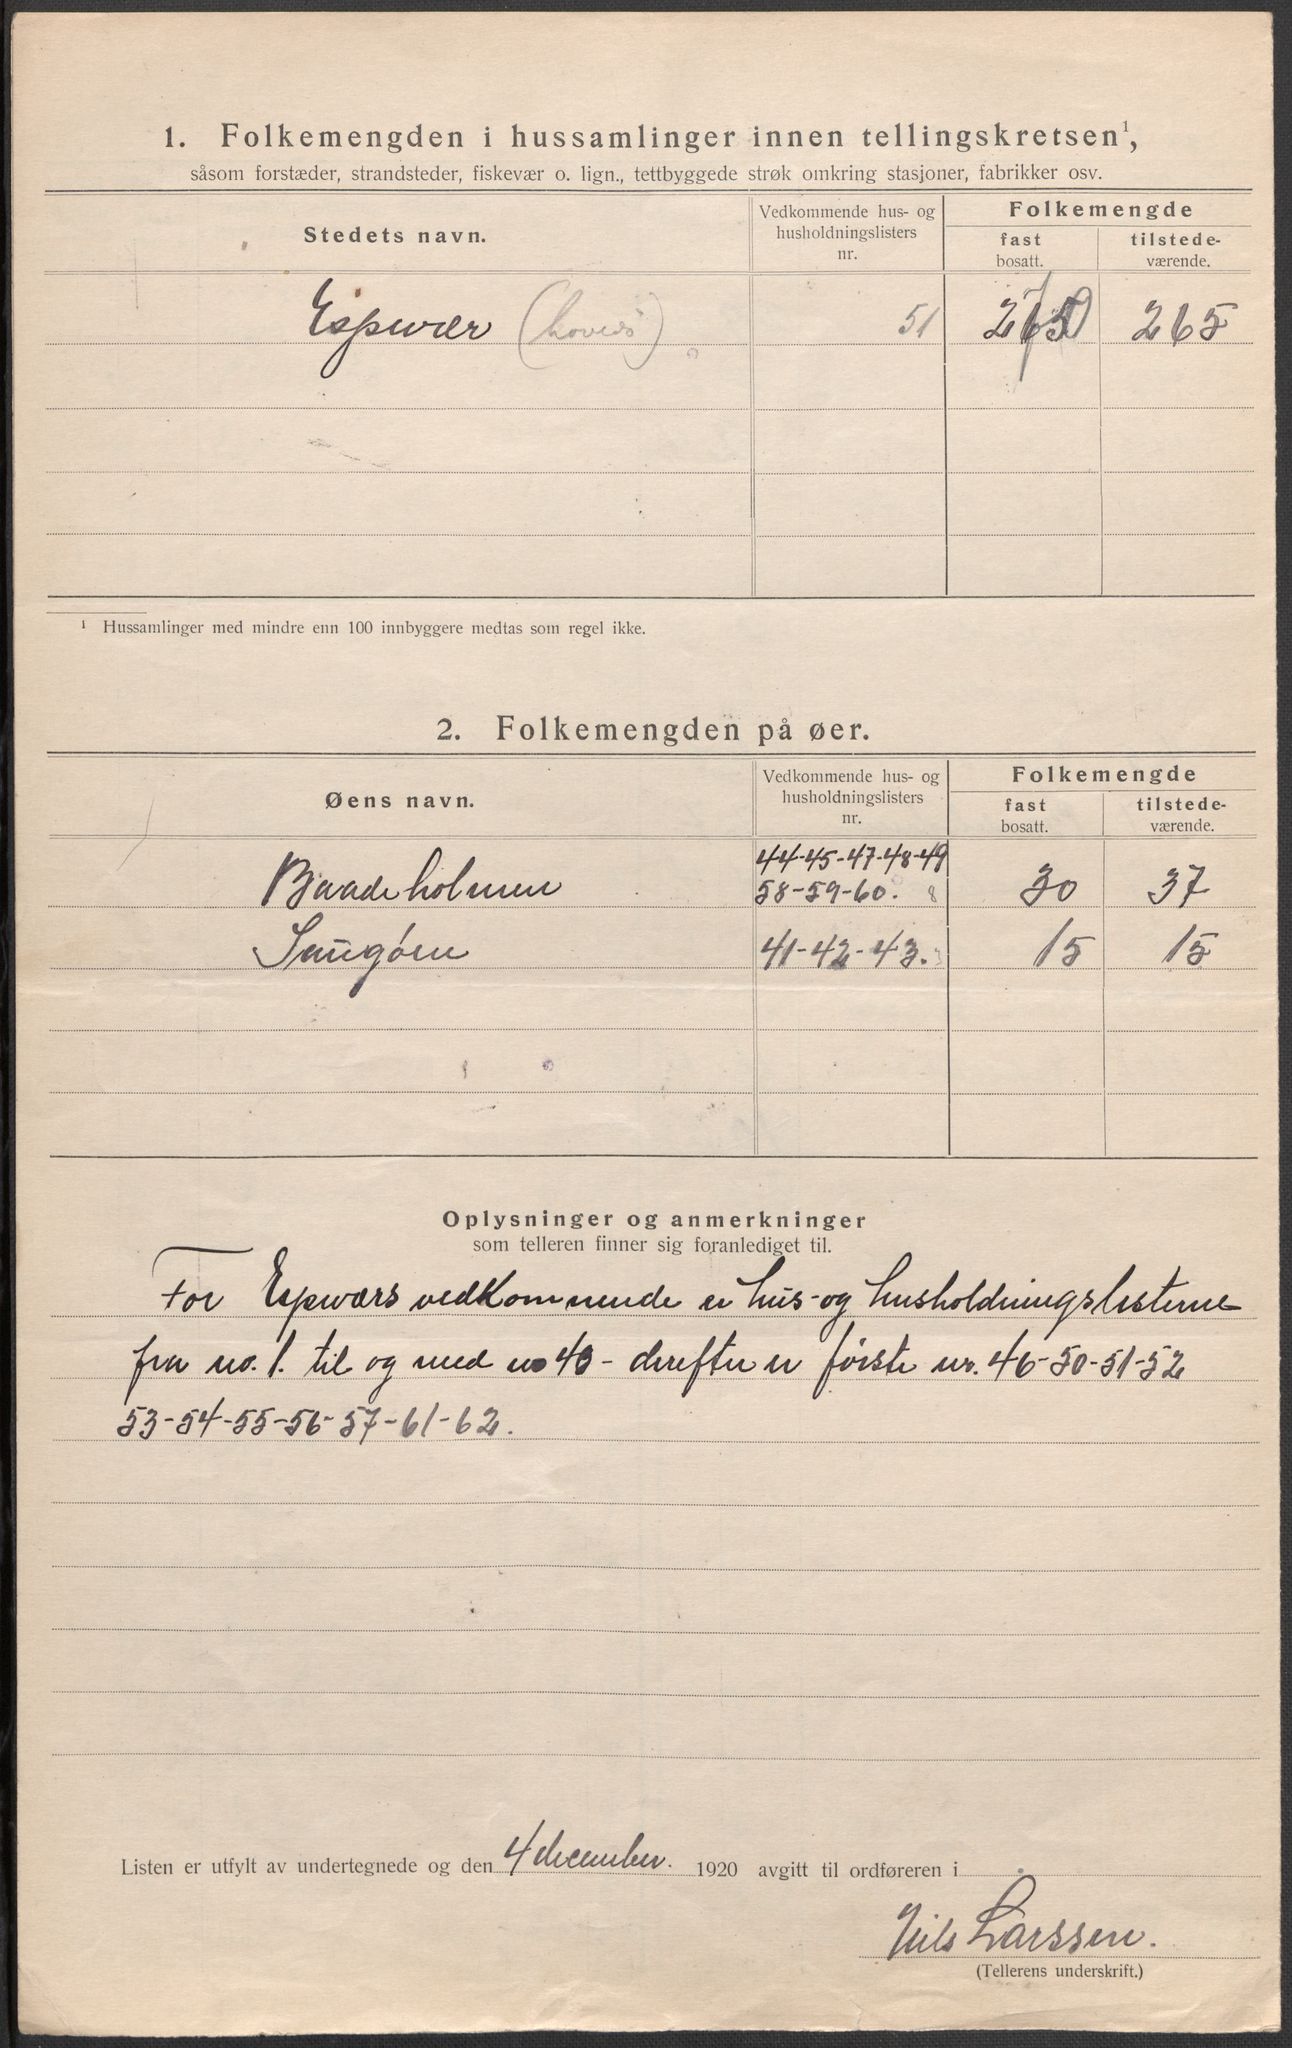 1. Folkemengden i hussamlinger innen tellingskretsen¹,
såsom forstæder, strandsteder, fiskevær o. lign., tettbyggede strøk omkring stasjoner, fabrikker osv.
Stedets navn. Vedkommende hus- og husholdningslisters nr. Folkemengde
fast bosatt. tilstede-værende.
Espevær 51 265 265
¹ Hussamlinger med mindre enn 100 innbyggere medtas som regel ikke.
2. Folkemengden på øer.
Øens navn. Vedkommende hus- og husholdningslisters nr. Folkemengde
fast bosatt. tilstede-værende.
44-45-47-48-49
Baadeholmen 58-59-60. 8 30 37
41-42-43. 3 15 15
Oplysninger og anmerkninger
som telleren finner sig foranlediget til.
For Espeværs vedkommende er hus- og husholdningslisterne
fra no. 1. til og med no 40 - derefter er første nr. 46-50-51-52
53-54-55-56-57-61-62.
Listen er utfylt av undertegnede og den 4 december. 1920 avgitt til ordføreren i
Nils Larssen.
(Tellerens underskrift.)